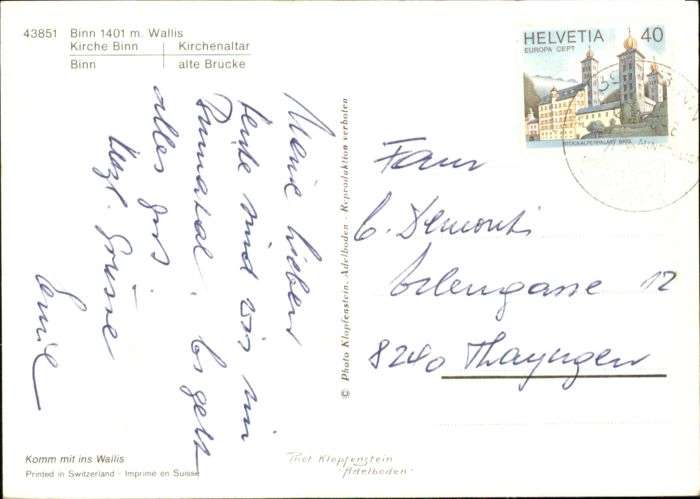 43851 Binn 1401 m. Wallis
Kirche Binn | Kirchenaltar
Binn | alte Brücke
HELVETIA 40
EUROPA CEPT
STOCKALPERPALAST BRIG
Meine Lieben
heute sind wir im
Binnatal. Es geht
alles gut.
Herzl. Grüsse
Emil
© Photo Klopfenstein, Adelboden - Reproduktion verboten
Frau
C. Demonti
Erlengasse 12
8240 Thayngen
Komm mit ins Wallis
Printed in Switzerland - Imprimé en Suisse
Phot Klopfenstein
"Adelboden"